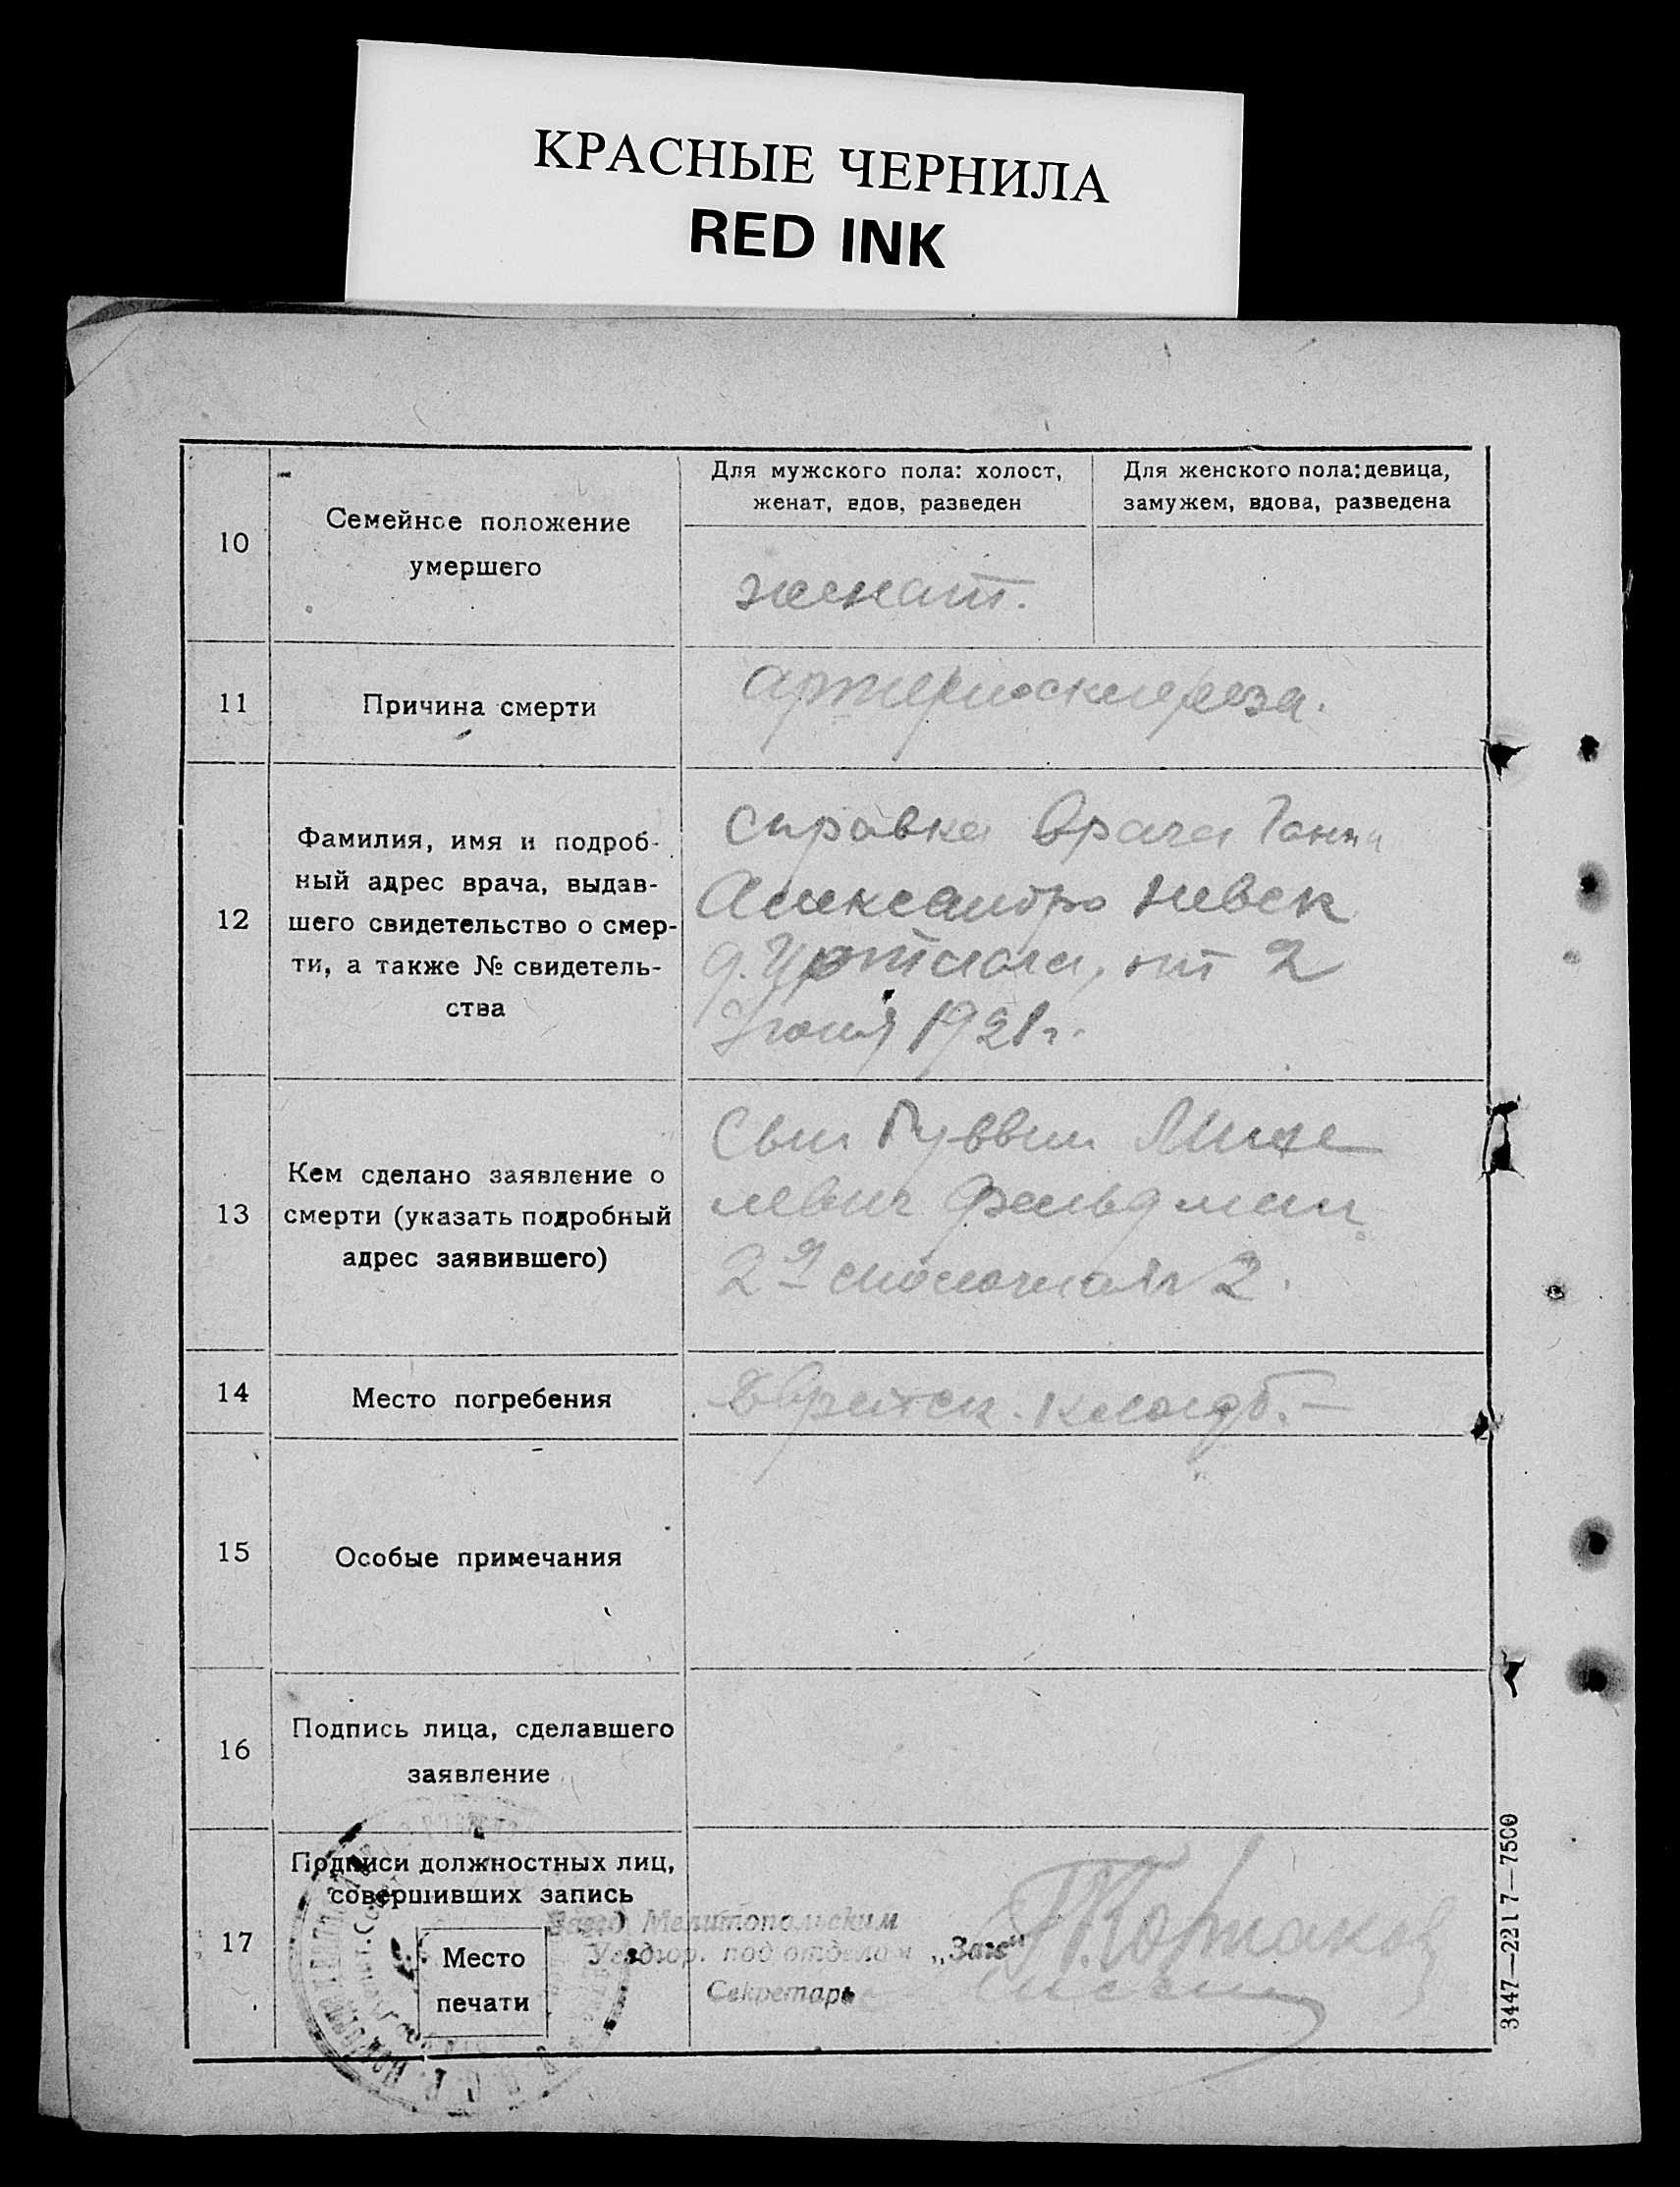 КРАСНЫЕ ЧЕРНИЛА
RED INK
Для мужского пола: холост,
женат, вдов, разведен
Для женского пола: девица,
замужем, вдова, разведена
10
Семейное положение
умершего
женат.
11
Причина смерти
артериосклероза.
12
Фамилия, имя и подроб-
ный адрес врача, выдав-
шего свидетельство о смер-
ти, а также № свидетель-
ства
справка врача
Александро Невск
от 2
Июня 1921 г.
13
Кем сделано заявление о
смерти (указать подробный
адрес заявившего)
Сын
левич Фельдман
2
14
Место погребения
Еврейск. кладб. —
15
Особые примечания
16
Подпись лица, сделавшего
заявление
17
Подписи должностных лиц,
совершивших запись
Место
печати
Завед Мелитопольским
Уездгор. под отделом „Загс“
Секретарь
3447—2217—7500